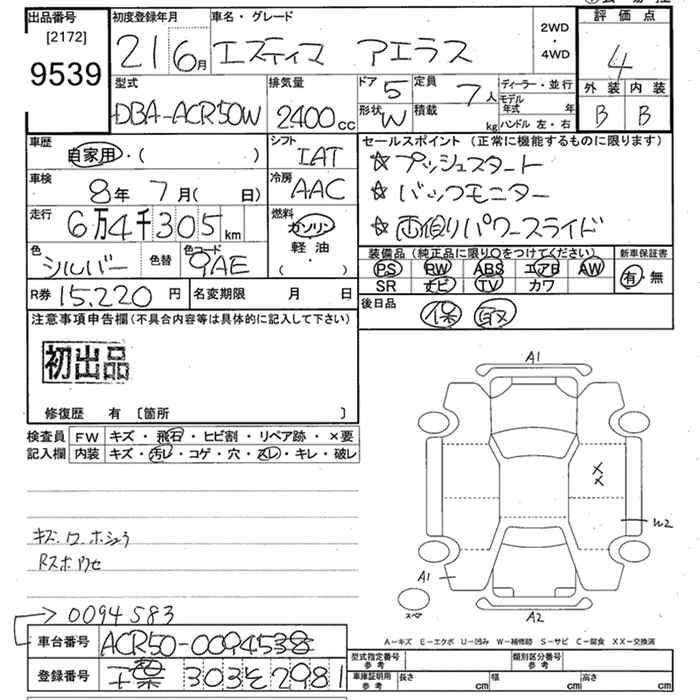 出品番号
[2172]
9539
初度登録年月
21 6月
車名・グレード
エスティマ アエラス
2WD
・
4WD
評価点
4
外装 内装
B B
型式
DBA-ACR50W
排気量
2400cc
ドア 5
形状 W
定員 7人
積載 kg
ディーラー・並行
モデル年式 年
ハンドル 左・右
車歴
自家用・( )
シフト
IAT
セールスポイント (正常に機能するものに限ります)
☆プッシュスタート
☆バックモニター
☆両側リパワースライド
車検
8年 7月( 日)
冷房
AAC
走行
6万4千305km
燃料
ガソリン
軽油
( ・ )
色
シルバー
色替
色コード
9AE
装備品 (純正品に限り○をつけてください)
PS PW ABS エアB AW
SR ナビ TV カワ
新車保証書
有・無
R券 15,220円
名変期限 月 日
後日品
保 取
注意事項申告欄(不具合内容等は具体的に記入して下さい)
初出品
修復歴 有 〔箇所 〕
検査員
記入欄
FW キズ・飛石・ヒビ割・リペア跡・×要
内装 キズ・汚レ・コゲ・穴・スレ・キレ・破レ
A1
×
×
W2
A1
スペア
A2
キズ.ワ.ホシュウ
Rスポワセ
0094583
車台番号
ACR50-0094538
登録番号
千葉 303 そ 2981
A-キズ E-エクボ U-凹み W-補修跡 S-サビ C-腐食 XX-交換済
型式指定番号
参考
類別区分番号
参考
車庫証明用
参考
長さ cm 幅 cm 高さ cm